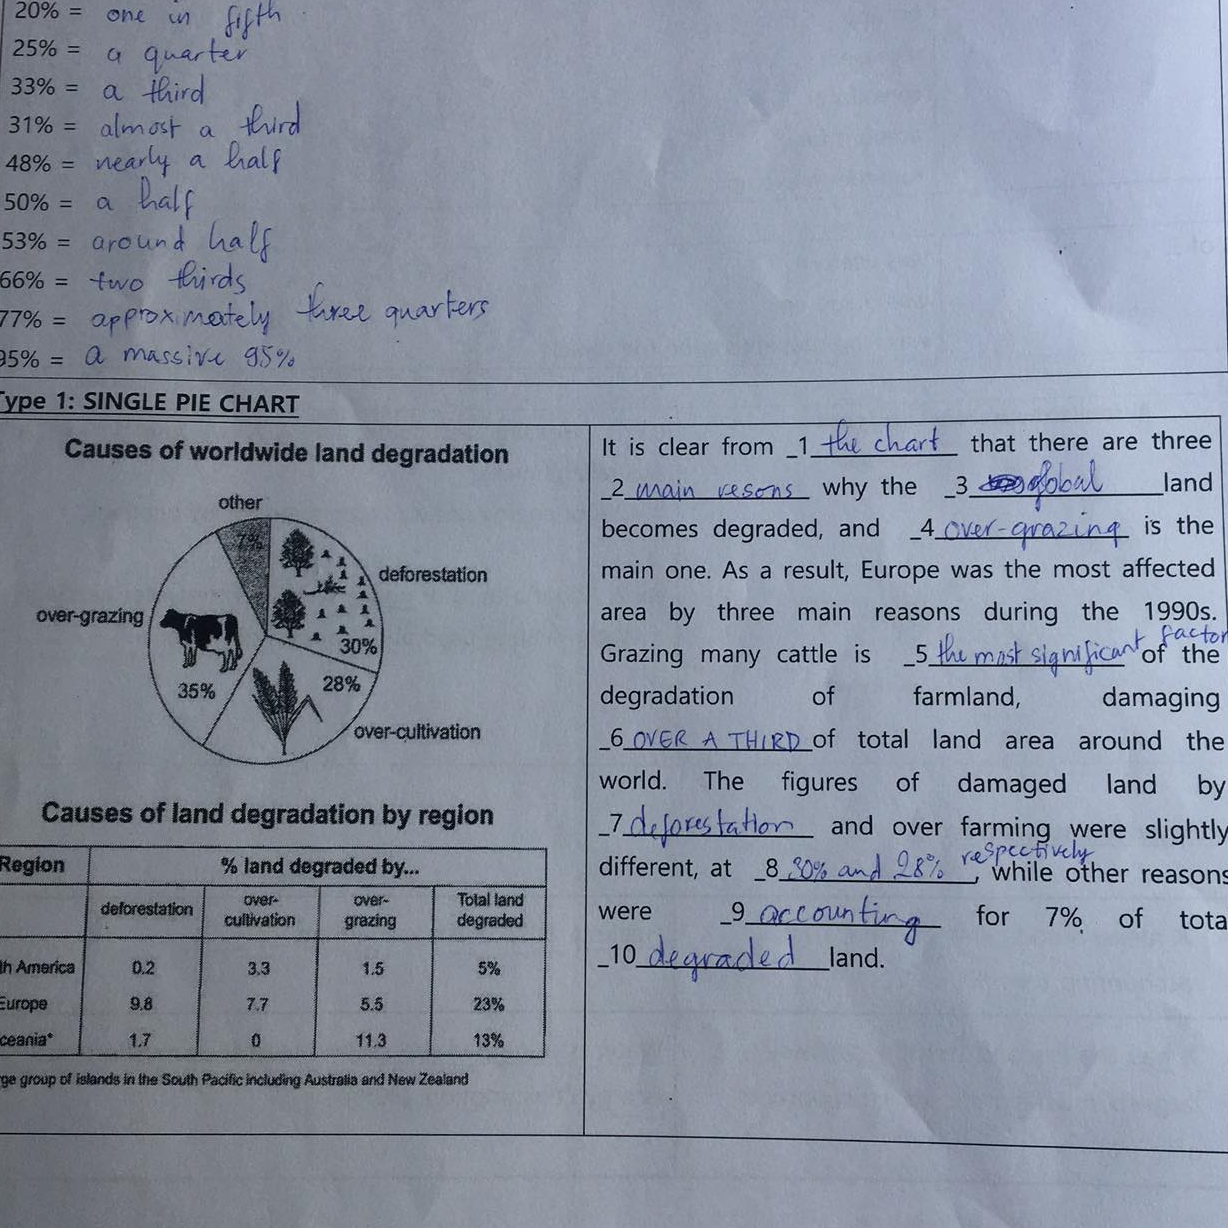 20% = one in fifth
25% = a quarter
33% = a third
31% = almost a third
48% = nearly a half
50% = a half
53% = around half
66% = two thirds
77% = approximately three quarters
95% = a massive 95%
Type 1: SINGLE PIE CHART
Causes of worldwide land degradation
other
7%
deforestation
over-grazing
30%
35%
28%
over-cultivation
Causes of land degradation by region
Region % land degraded by...
deforestation over-cultivation over-grazing Total land degraded
th America 0.2 3.3 1.5 5%
Europe 9.8 7.7 5.5 23%
ceania* 1.7 0 11.3 13%
ge group of islands in the South Pacific including Australia and New Zealand
It is clear from _1 the chart that there are three
_2 main resons why the _3 global land
becomes degraded, and _4 over-grazing is the
main one. As a result, Europe was the most affected
area by three main reasons during the 1990s.
Grazing many cattle is _5 the most significant factor of the
degradation of farmland, damaging
_6 OVER A THIRD of total land area around the
world. The figures of damaged land by
_7 deforestation and over farming were slightly
different, at _8 30% and 28% respectively, while other reasons
were _9 accounting for 7% of tota
_10 degraded land.